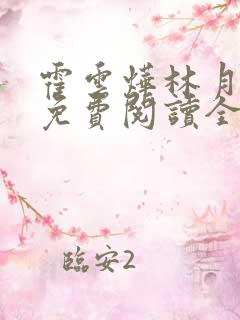 霍雲燁林月
免費閱讀全
臨安2